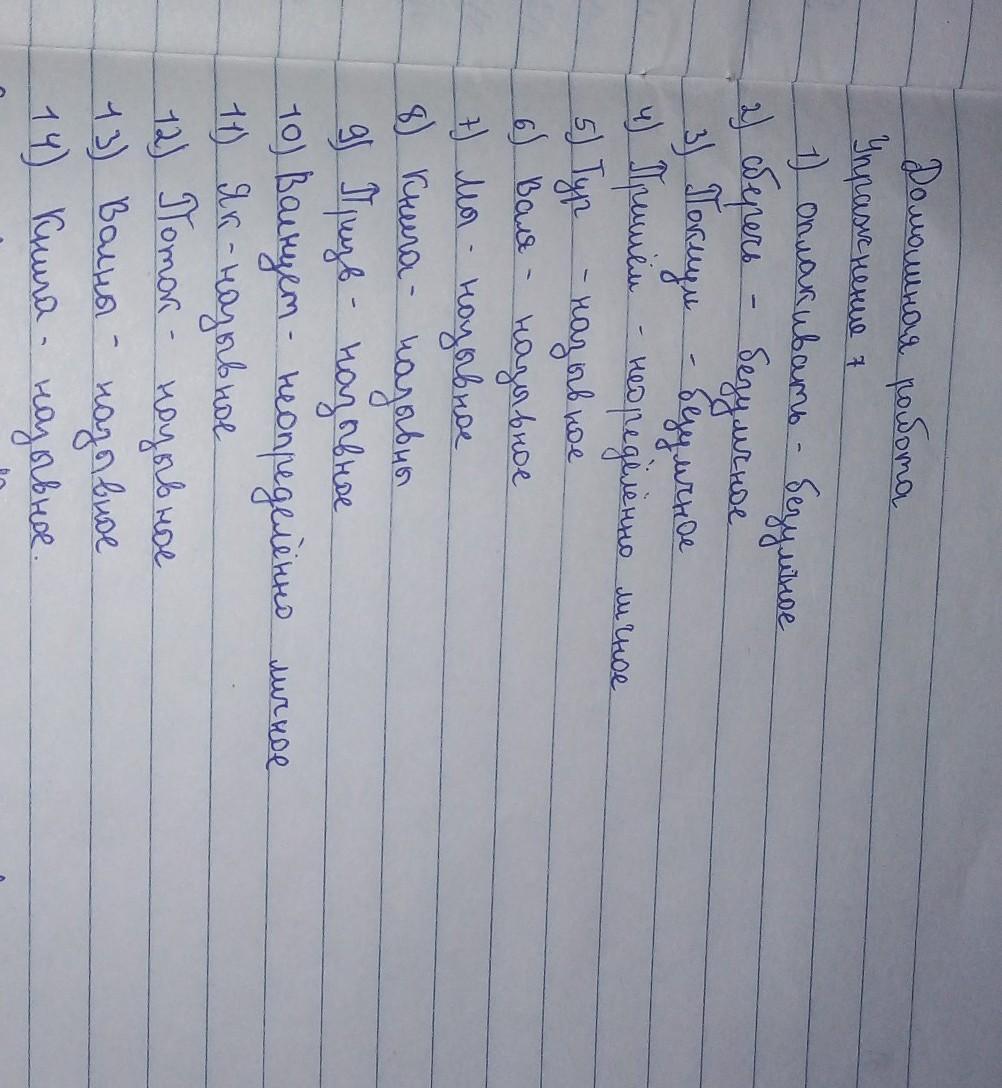 Домашняя работа
Упражнение 7
1) оплакивать - безличное
2) сберечь - безличное
3) - безличное
4) Пришлём - неоределённо личное
5) Тур - назывное
6) Валя - назывное
7) Мы - назывное
8) Книга - назывны
9) - назывное
10) - неопределённо личное
11) Як - назывное
12) Поток - назывное
13) Волны - назывное
14) Книга - назывное.